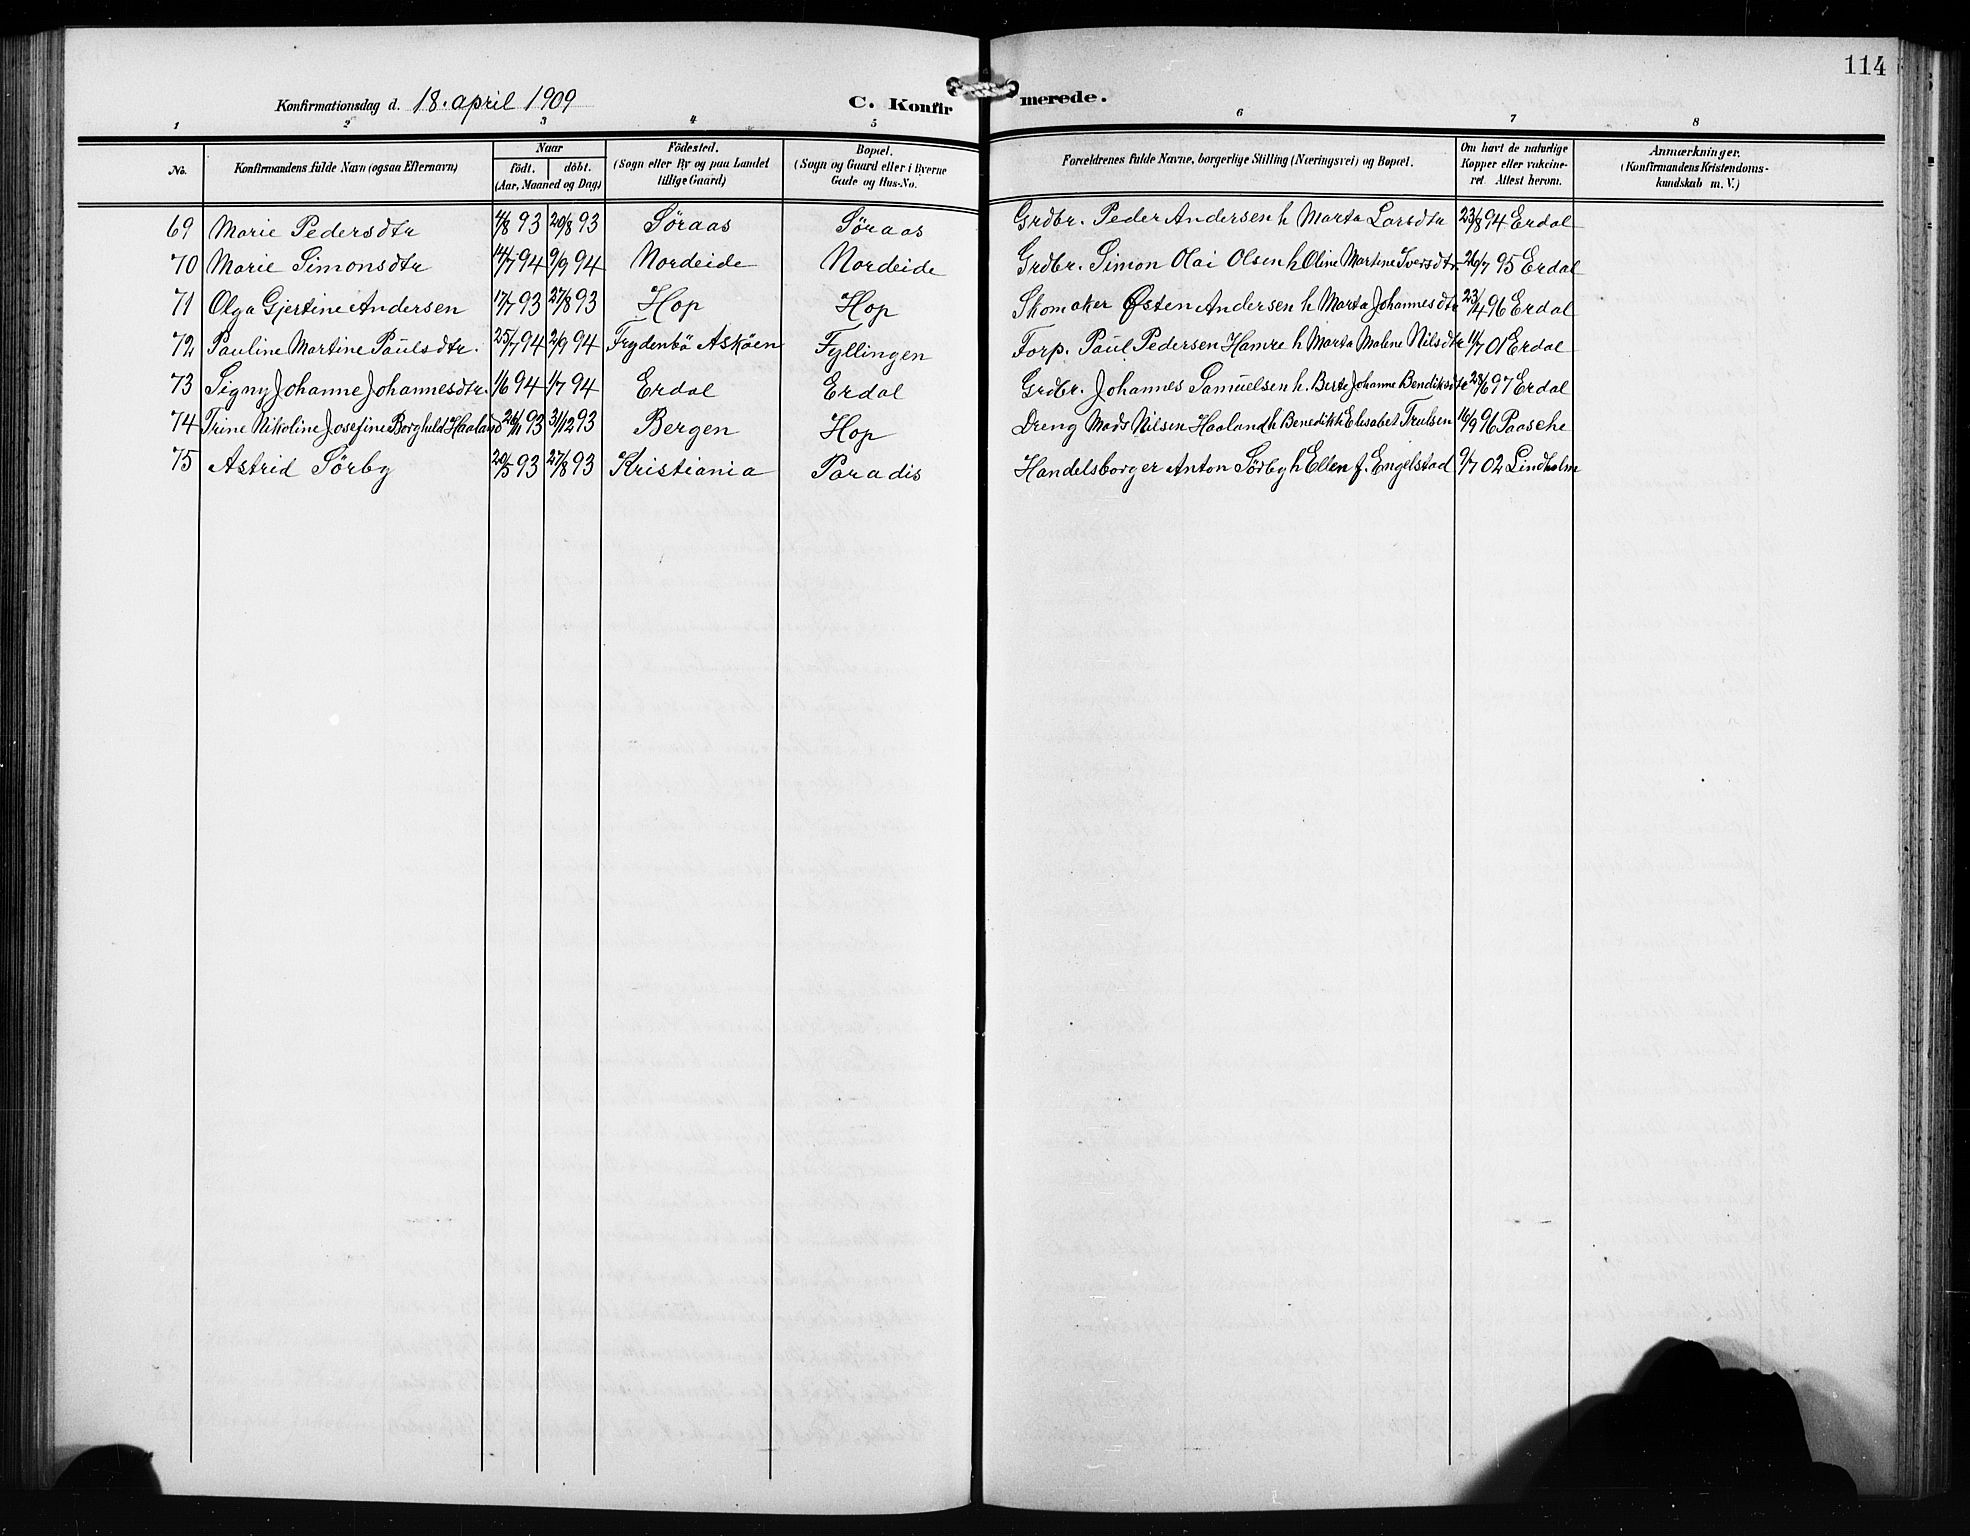 114
Konfirmationsdag d. 18. april 1909 C. Konfirmerede.
1 2 3 4 5 6 7 8
No. Konfirmandens fulde Navn (ogsaa Efternavn) Naar født. døbt. (Aar, Maaned og Dag) Fødested. (Sogn eller By og paa Landet tillige Gaard) Bopæl. (Sogn og Gaard eller i Byerne Gade og Hus-No. Forældrenes fulde Navne, borgerlige Stilling (Næringsvei) og Bopæl. Om havt de naturlige Kopper eller vakcineret. Attest herom. Anmærkninger. (Konfirmandens Kristendomskundskab m. V.)
69 Marie Pedersdtr 4/8 93 20/8 93 Søraas Søraas Grdbr. Peder Andersen h Marta Larsdtr 23/8 94 Erdal
70 Marie Simonsdtr 14/7 94 9/9 94 Nordeide Nordeide Grdbr. Simon Olai Olsen h Oline Martine Iversdtr. 26/7 95 Erdal
71 Olga Gjertine Andersen 17/7 93 27/8 93 Hop Hop Skomaker Østen Andersen h Marta Johannesdtr 23/4 96 Erdal
72 Pauline Martine Paulsdtr. 25/7 94 2/9 94 Frydenbö Asköen Fyllingen Forp. Paul Pedersen Hamre h Marta Malene Nilsdtr 11/7 01 Erdal
73 Signy Johanne Johannesdtr. 1/6 94 1/7 94 Erdal Erdal Grdbr. Johannes Samuelsen h. Berte Johanne Bendiksdtr 28/6 97 Erdal
74 Trine Nikoline Josefine Borghild Haaland 26/11 93 31/12 93 Bergen Hop Dreng Mads Nilsen Haaland h Benedikte Elisabet Trulsen 16/9 96 Paasche
75 Astrid Sörby 20/5 93 27/8 93 Kristiania Paradis Handelsborger Anton Sörby h Ellen f. Engelstad 9/7 02 Lindholm